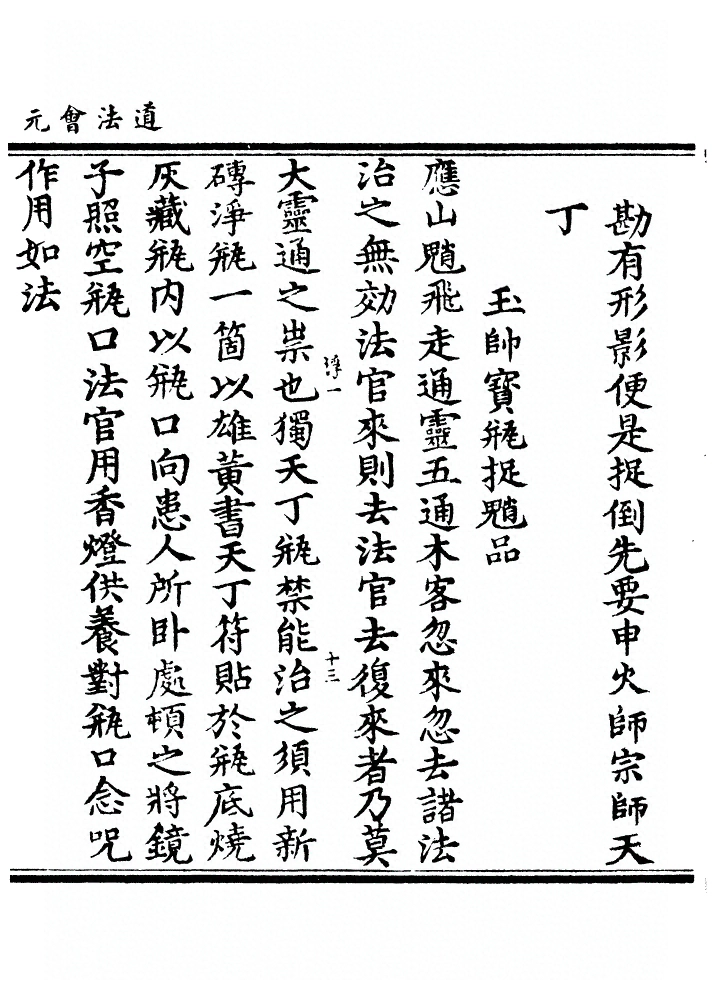 道法會元
勘有形影便是捉倒先要申火師宗師天
丁
玉帥寶瓶捉魈品
應山魈飛走通靈五通木客忽來忽去諸法
治之無効法官來則去法官去復來者乃莫
大靈通之祟也獨天丁瓶禁能治之須用新
磚淨瓶一箇以雄黃書天丁符貼於瓶底燒
灰藏瓶內以瓶口向患人所臥處頓之將鏡
子照空瓶口法官用香燈供養對瓶口念呪
作用如法
浮一
十三